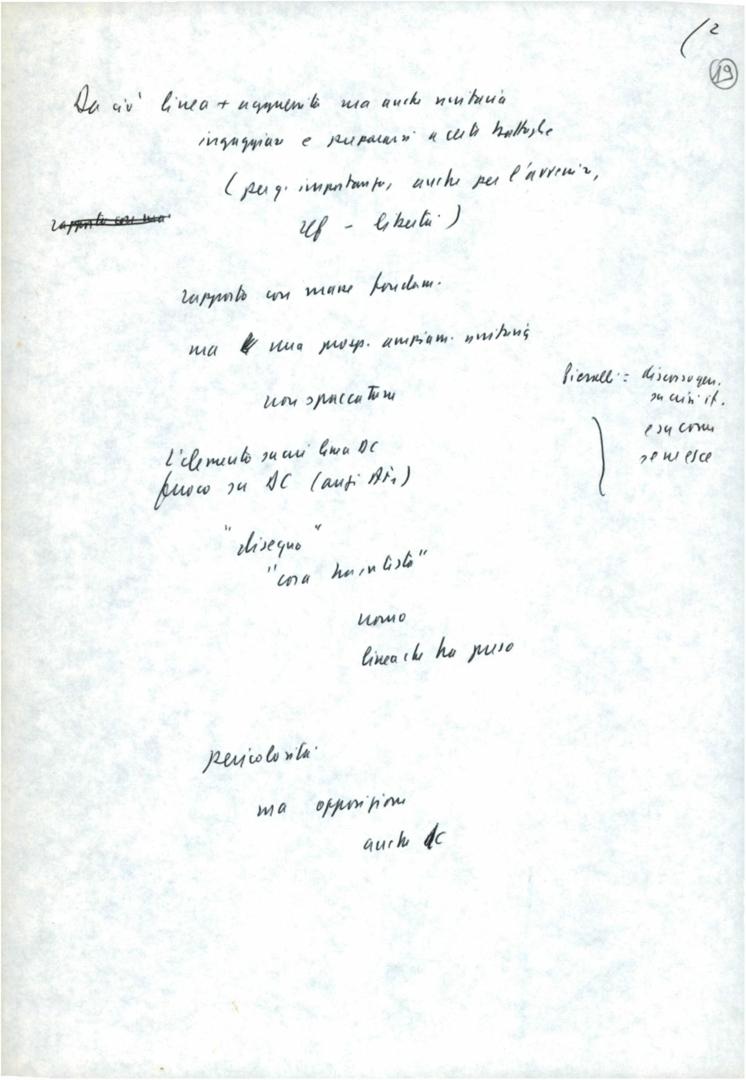 (2
19
Da ciò linea + aggressiva ma anche unitaria
ingaggiare e prepararsi a certe battaglie
(per q. importante, anche per l'avvenire,
rif - libertà)
rapporto con ma
rapporto con masse fondam.
ma una prosp. ampiam. unitaria
non spaccatura
Pieralli: discorso gen.
su crisi it.
e su come
se ne esce
L'elemento su cui linea DC
fuoco su DC (anzi
"disegno"
"cosa ha in testa"
uomo
linea che ha preso
pericolosità
ma opposizione
anche DC